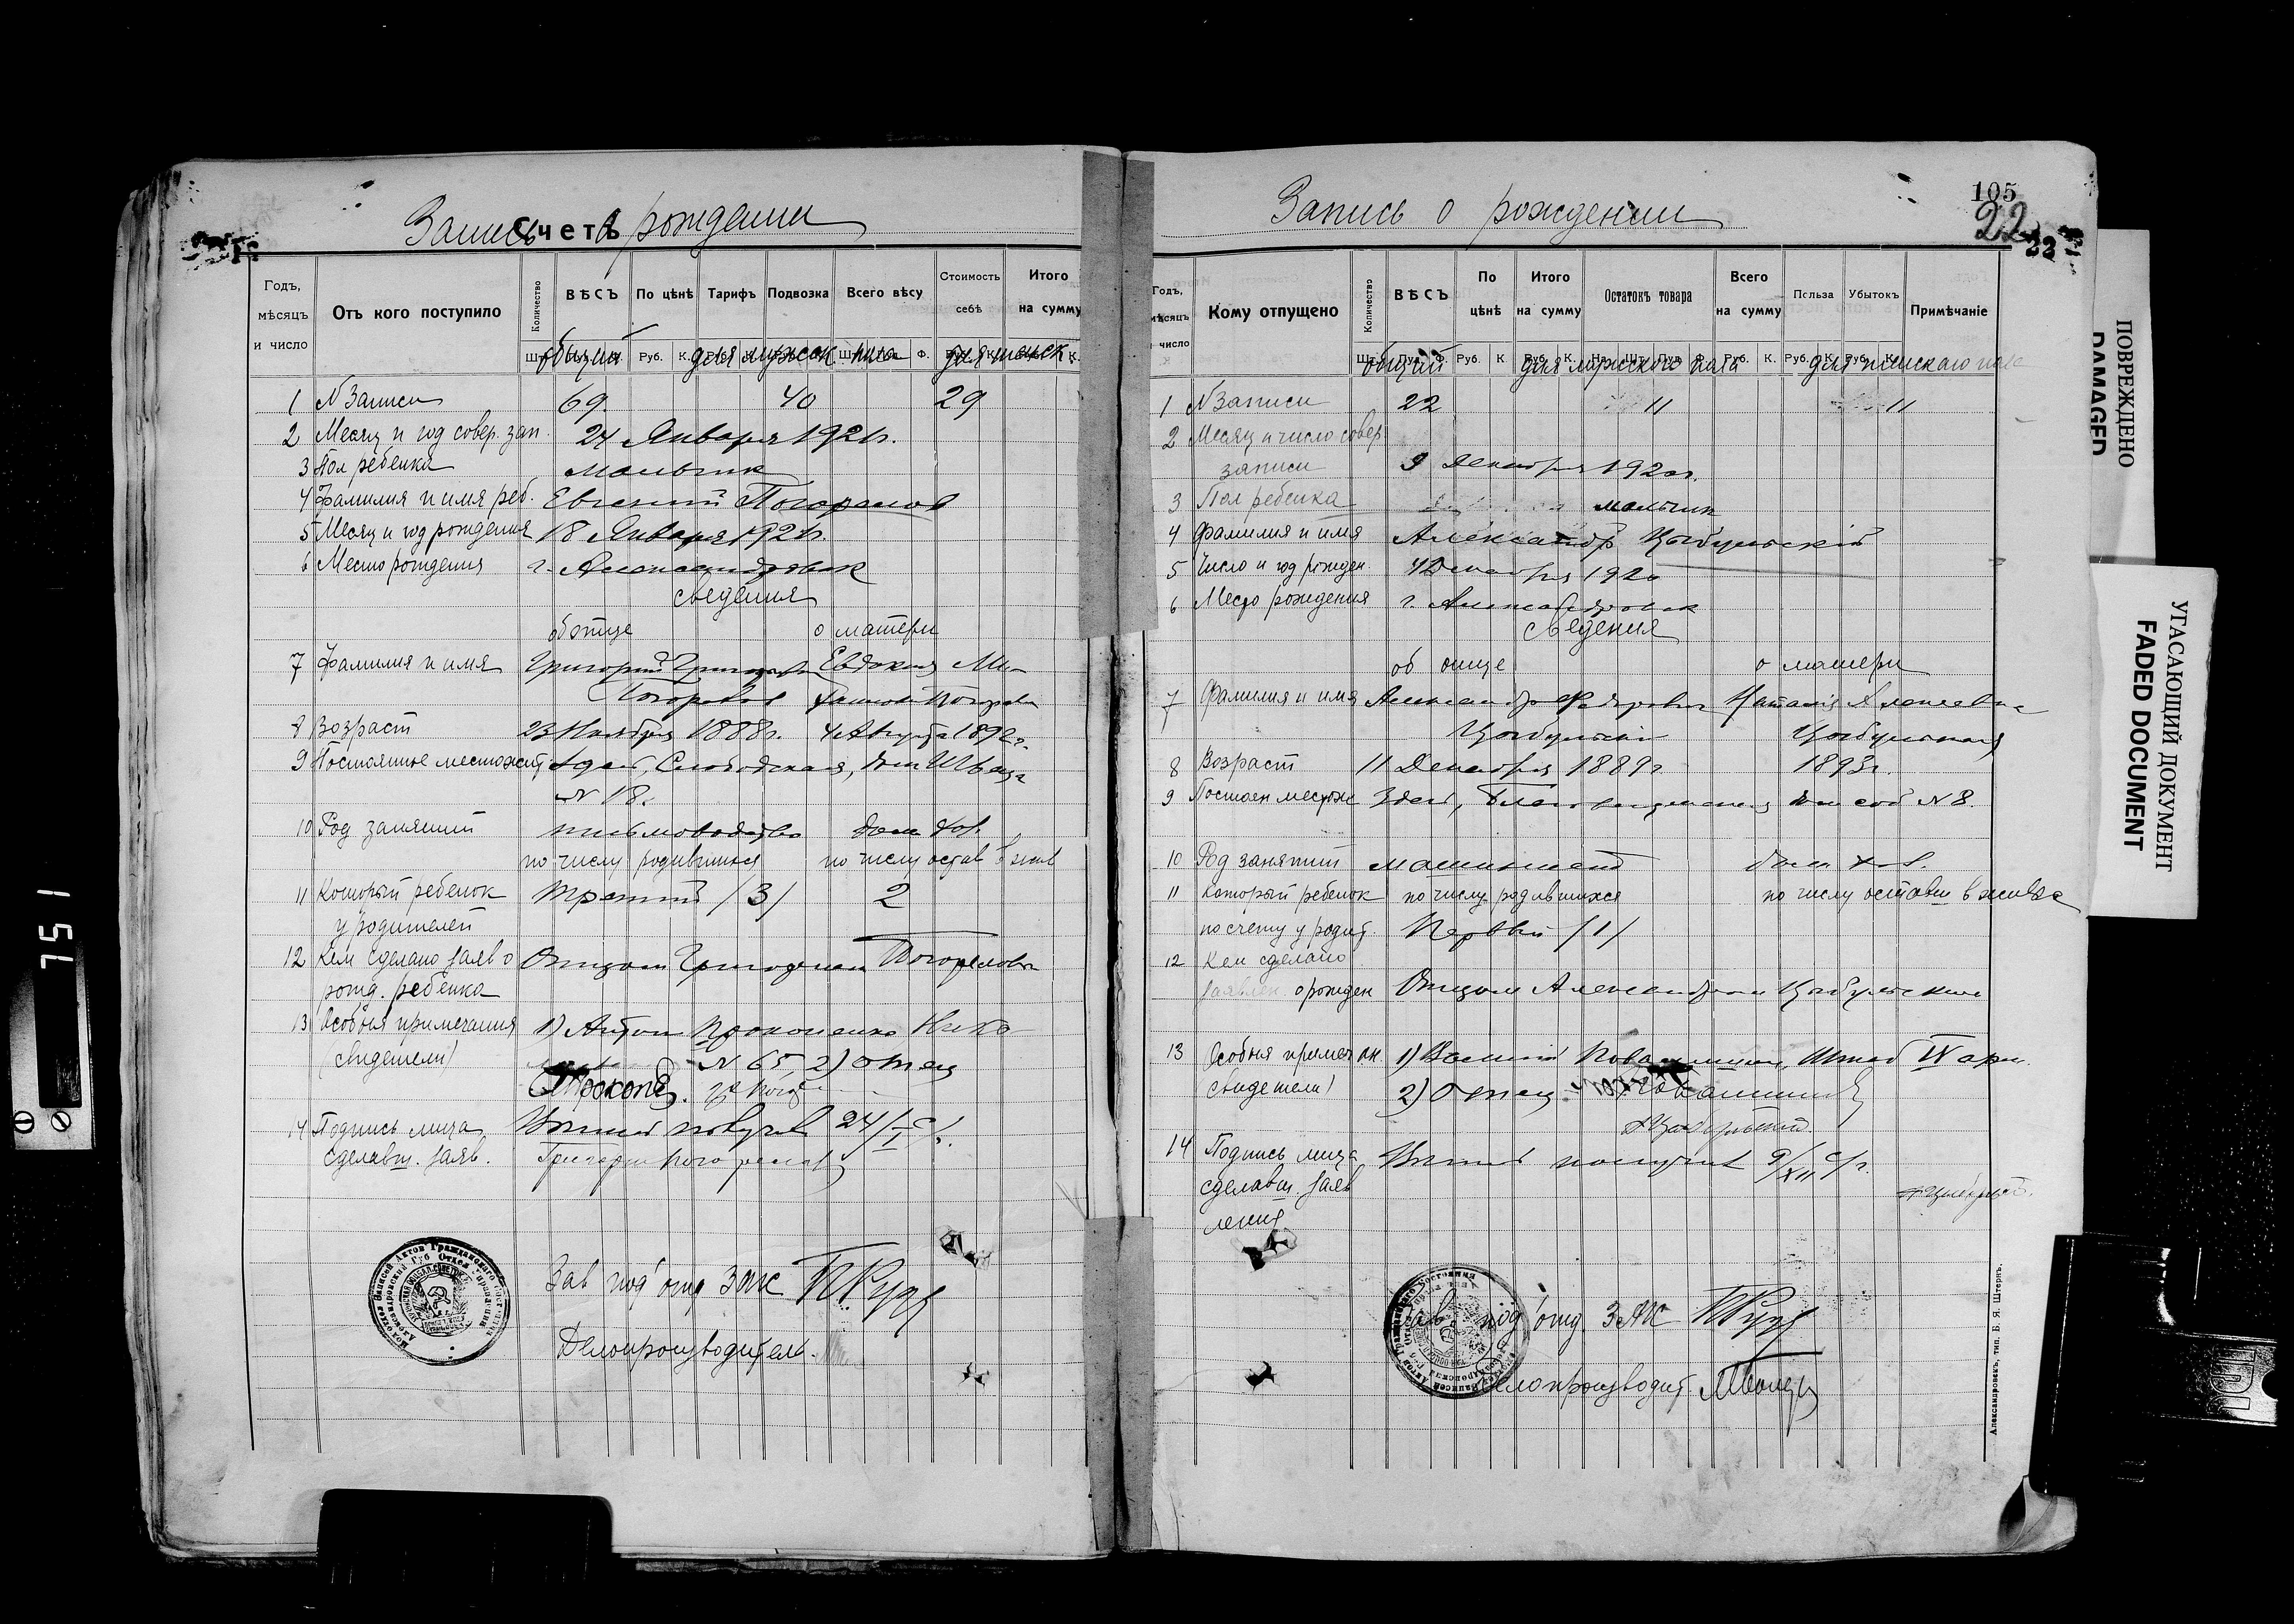 Запись о рождении
Счетъ
Годъ, мѣсяцъ и число
Отъ кого поступило
Количество
ВѢСЪ
По цѣнѣ
Тарифъ
Подвозка
Всего вѣсу
Стоимость себѣ
Итого на сумму
общий для мужск. пола для женск
1 N Записи 69. 40 29
2 Месяц и год совер. зап. 24 Января 1921г.
3 Пол ребенка мальчик
4 Фамилия и имя реб. Евгений Погорелов
5 Месяц и год рождения 18 Января 1921г.
6 Место рождения г. Александровск
сведения
об отце о матери
7 Фамилия и имя Григорий Григорьев Евдокия Ми-
Погорелов
8 Возраст 23 Ноября 1888г. 4 Августа 1892г.
9 Постоянное местожит Слободская, дом Швеца
N 18.
10 Род занятий письмоводство дом. хоз.
по числу родившихся по числу остав в жив
11 Который ребенок третий /3/ 2
у родителей
12 Кем сделано заяв о Отцом Григорием Погореловым
рожд. ребенка
13 Особыя примечания 1) Антон Прокопенко
(свидетели) N 65, 2) отец
14 Подпись лица 24/I с/г.
сделавш. заяв. Григорий Погорелов
Зав под'отд ЗАК
Делопроизводитель
Запись о рождении
105
22
23
Годъ, мѣсяцъ и число
Кому отпущено
Количество
ВѢСЪ
По цѣнѣ
Итого на сумму
Остатокъ товара
Всего на сумму
Польза
Убытокъ
Примѣчаніе
общий для мужского пола для женскаго пола
1 N Записи 22 11 11
2 Месяц и число совер.
записи 9 Декабря 1920г.
3 Пол ребенка мальчик
4 Фамилия и имя Александр Цыбульский
5 Число и год рожден. 4 Декабря 1920
6 Место рождения г. Александровск
сведения
об отце о матери
7 Фамилия и имя Александр Федорович Наталия Алексеевна
Цыбульский Цыбульская
8 Возраст 11 Декабря 1889г 1893г.
9 Постоян местож Здесь, дом соб N 8.
10 Род занятий машинист дом. хоз.
11 Который ребенок по числу родившихся по числу оставш в живых
по счету у родит. Первый /1/
12 Кем сделано
заявлен. о рожден Отцом Александром Цыбульским
13 Особыя примечан. 1) Василий Штаб IV арм.
свидетели) 2) Отец
14 Подпись лица 9/XII с/г.
сделавш. заяв
ления
Зав под'отд. ЗАК
Делопроизводит.
Александровскъ, тип. Б. Я. Штернъ.
ПОВРЕЖДЕНО
DAMAGED
УГАСАЮЩИЙ ДОКУМЕНТ
FADED DOCUMENT
151